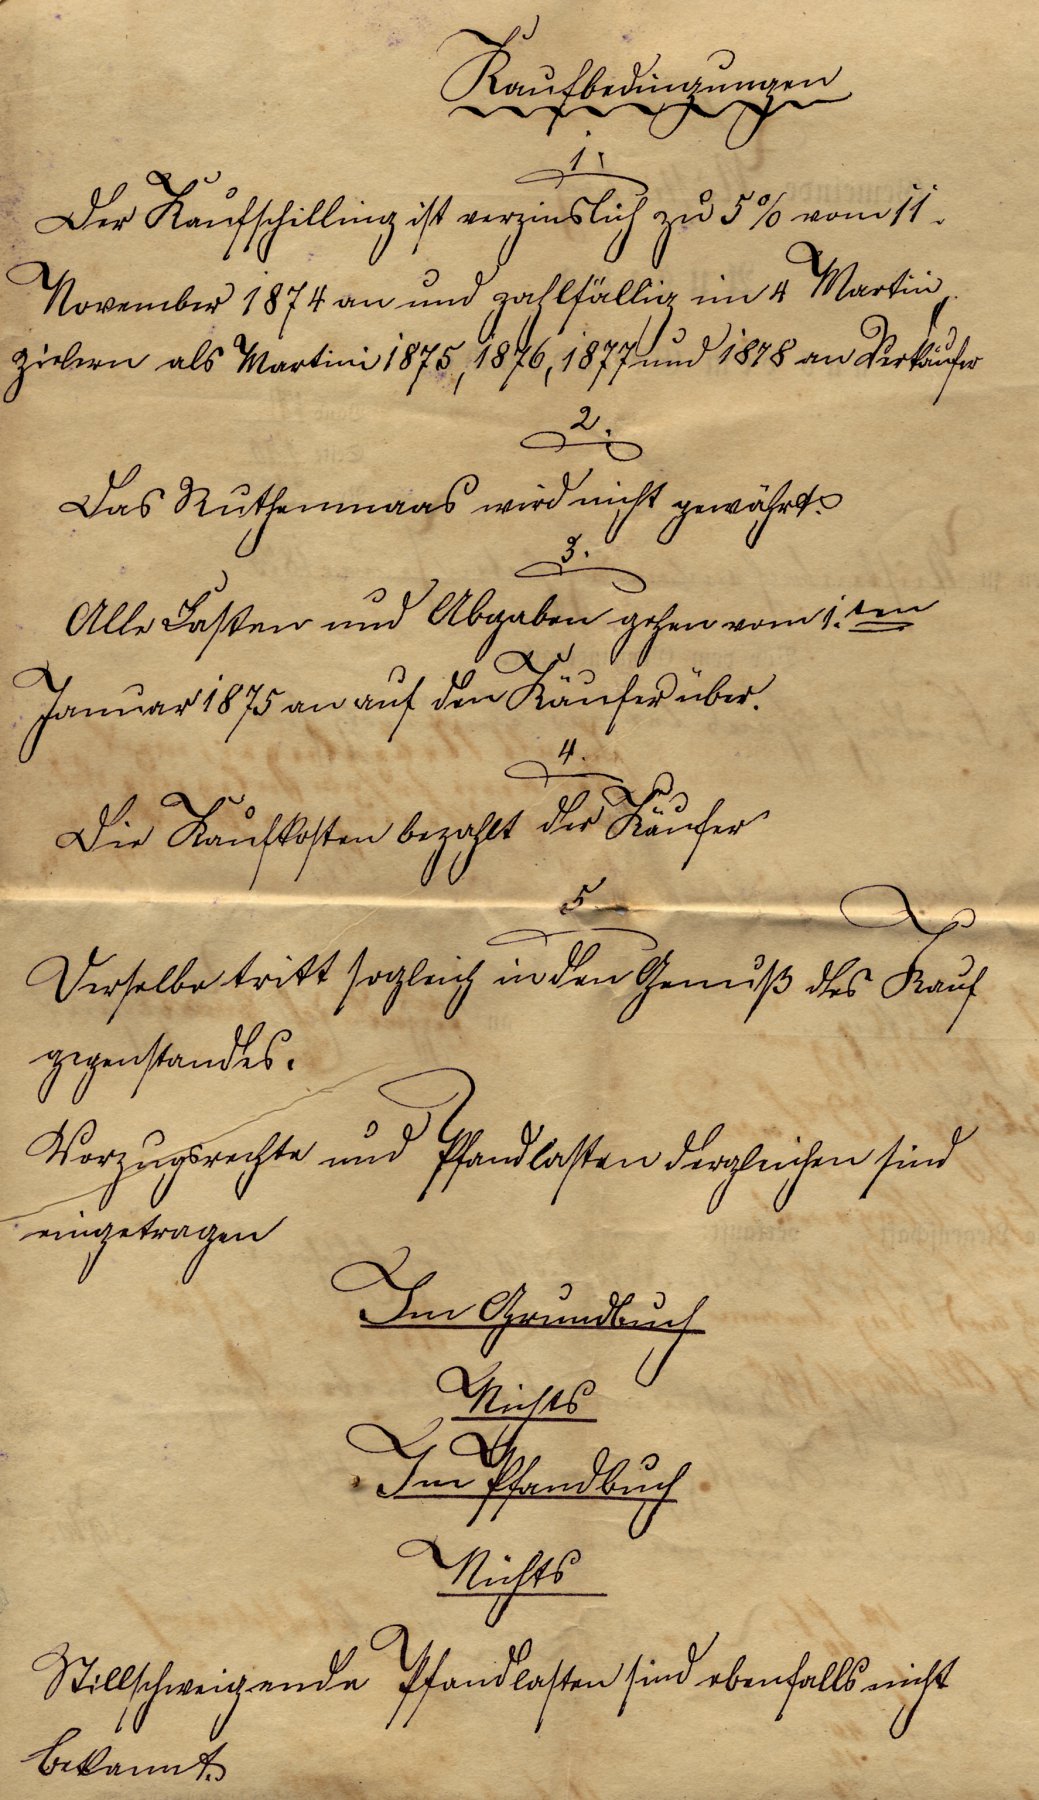 Kaufbedingungen
1.
Der Kaufschilling ist verzinslich zu 5% vom 11.
November 1874 an und zahlfällig in 4 Martin
zielern als Martini 1875, 1876, 1877 und 1878 an Verkäufer
2.
Das Ruthenmaas wird nicht gewährt.
3.
Alle Lasten und Abgaben gehen vom 1. ten
Januar 1875 an auf den Käufer über.
4.
Die Kaufkosten bezahlt der Käufer
5
Derselbe tritt sogleich in den Genuß des Kauf
gegenstandes.
Vorzugsrechte und Pfandlasten dergleichen sind
eingetragen
Im Grundbuch
Nichts
Im Pfandbuch
Nichts
Stillschweigende Pfandlasten sind ebenfalls nicht
bekannt.